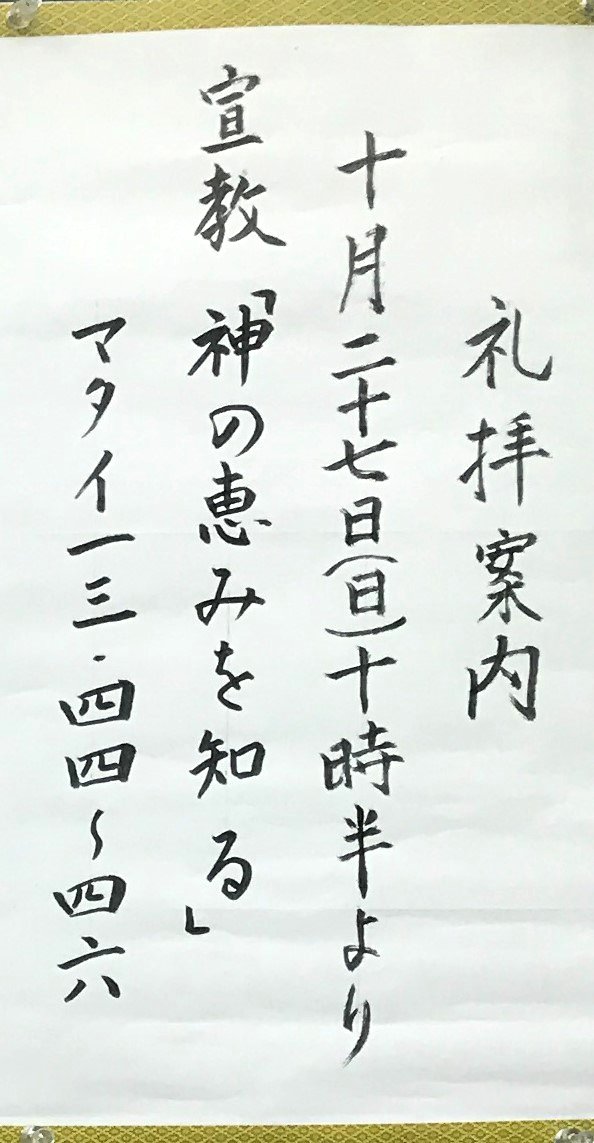 礼拝案内
十月二十七日(日)十時半より
宣教「神の恵みを知る」
マタイ一三・四四〜四六